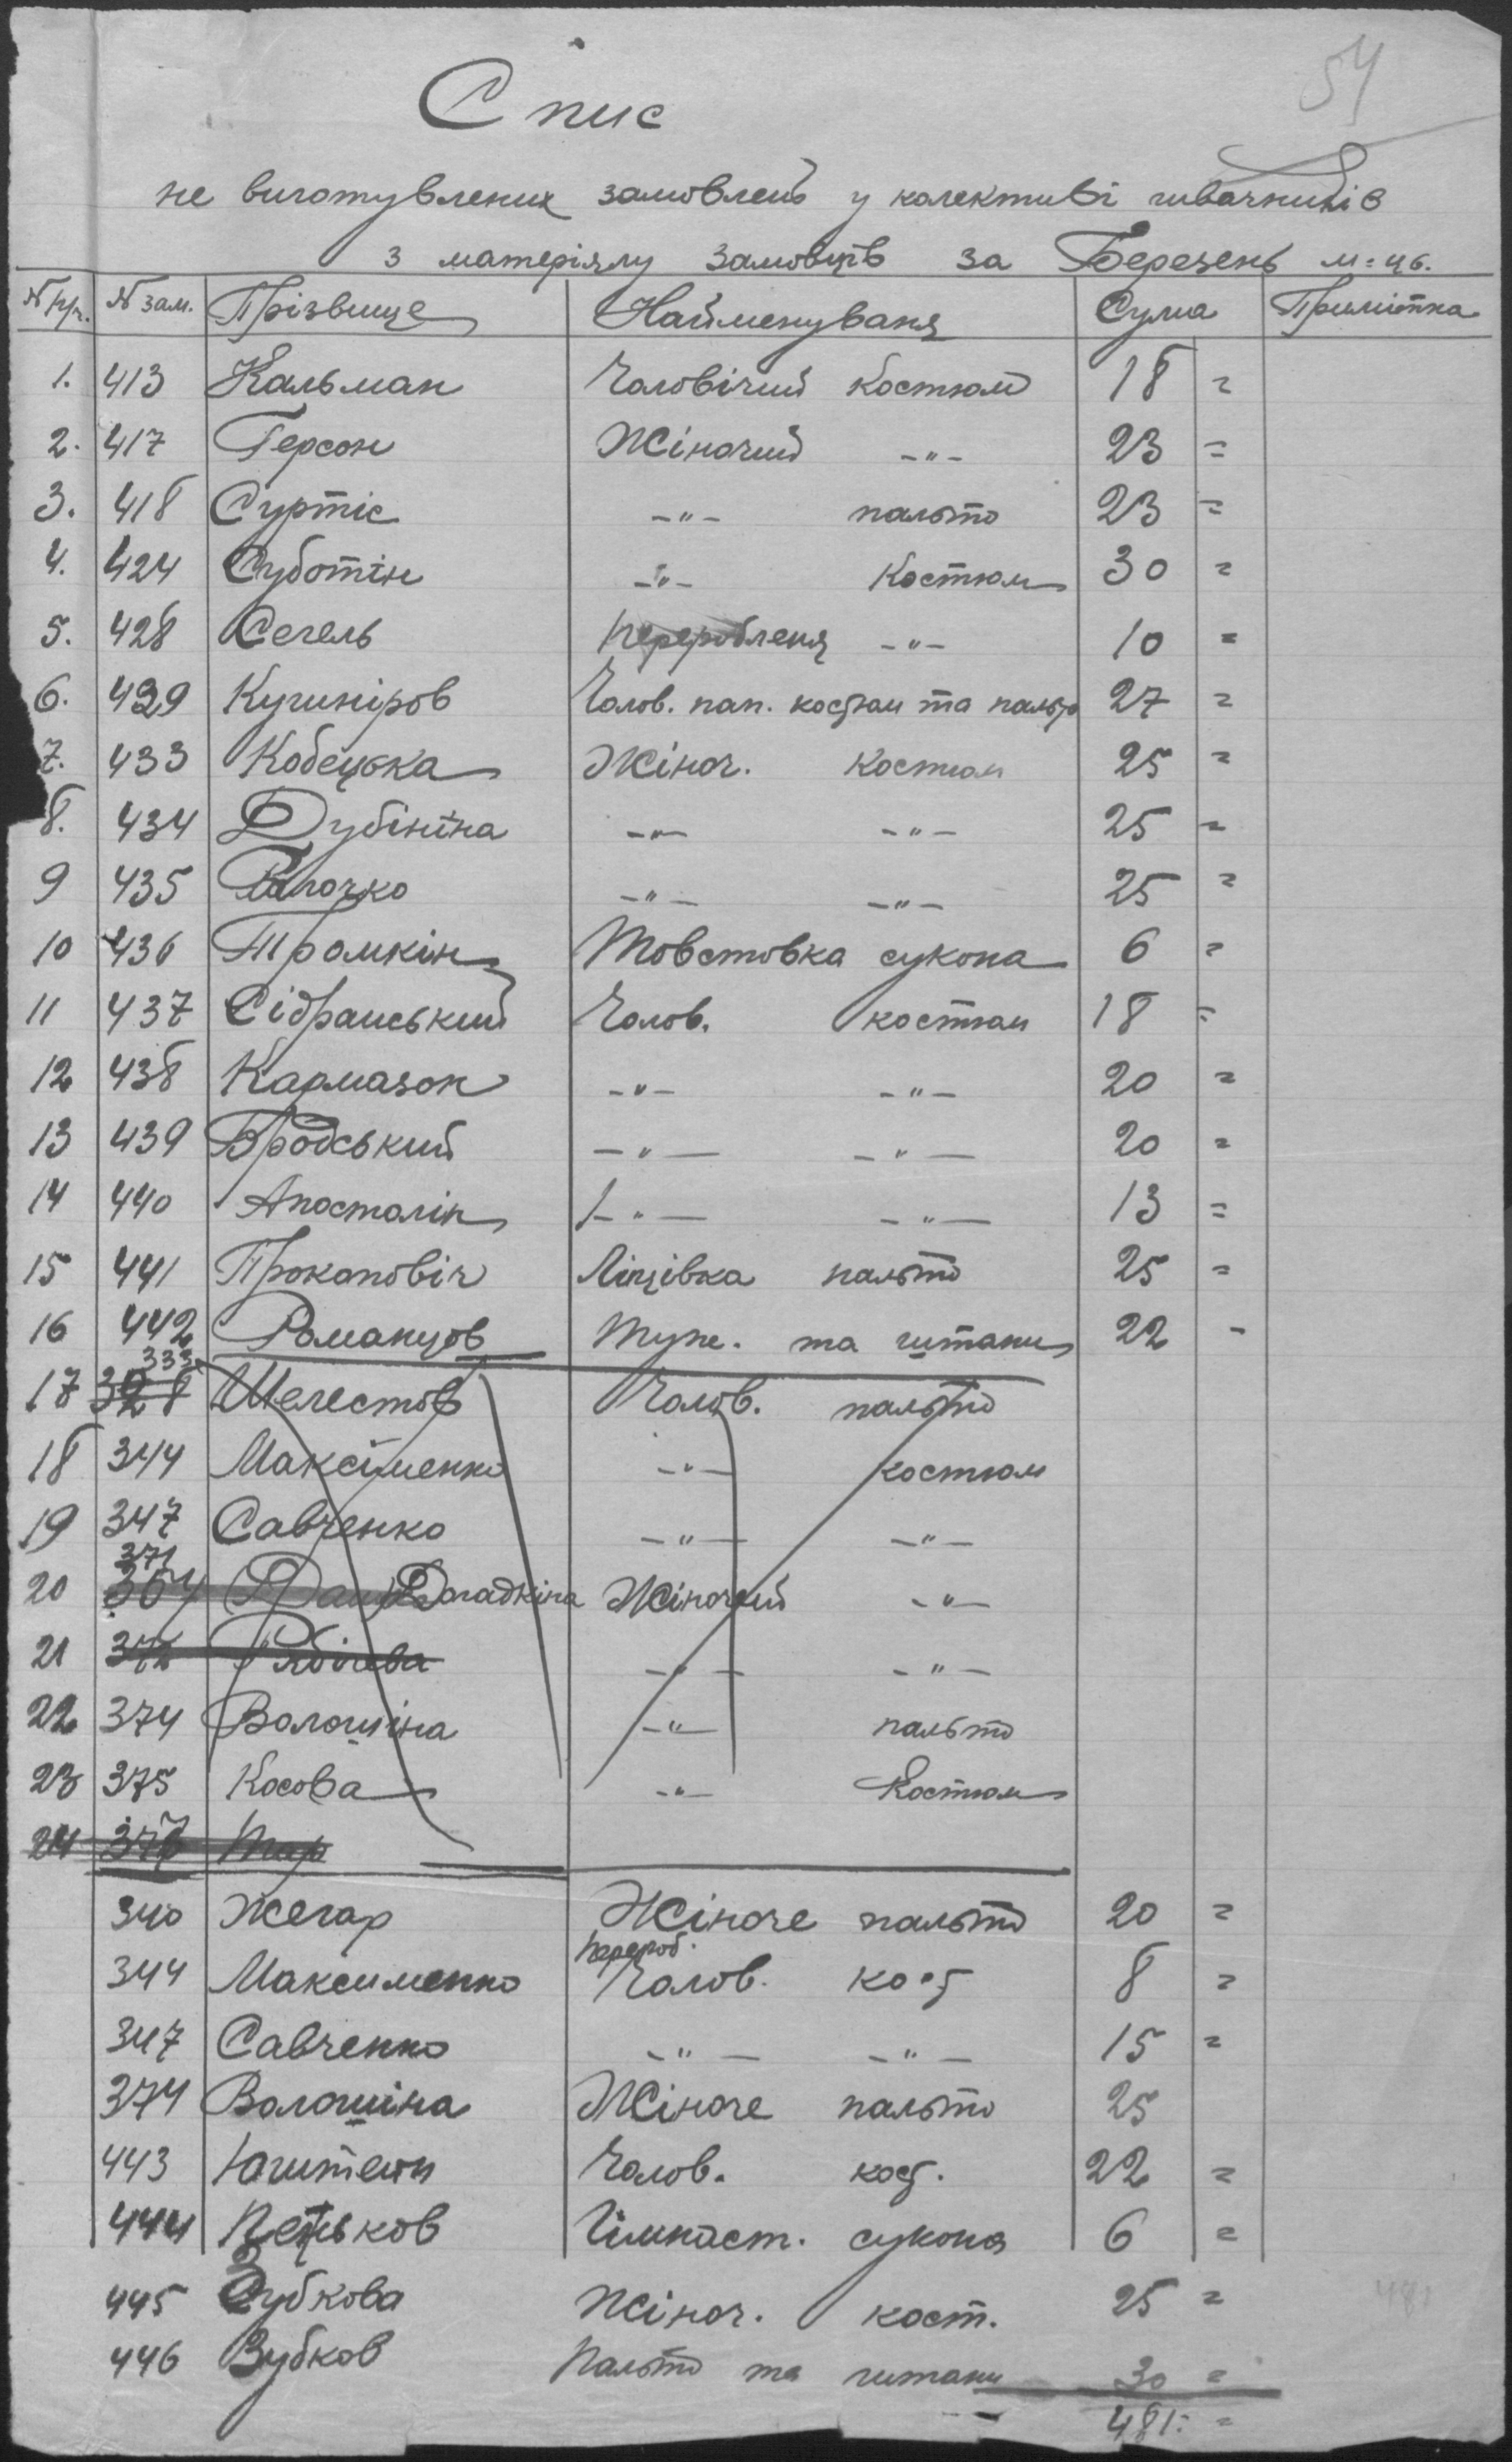 54
Спис
не виготувлених замовлень у колективі швачників
з матеріялу замовців за Березень м-ць.
№ п/ч. № зам. Прізвище Найменуваня Сума Примітка
1. 413 Кальман Чоловічий костюм 18 =
2. 417 Герсон Жіночий -"- 23 =
3. 418 Суртіс -"- пальто 23 =
4. 424 Суботін -"- Костюм 30 =
5. 428 Сегель Перероблення -"- 10 =
6. 429 Кушніров Чолов. пап. костюм та пальто 27 =
7. 433 Кобецька Жіноч. костюм 25 =
8. 434 Дубініна -"- -"- 25 =
9 435 -"- -"- 25 =
10 436 Тромкін Товстовка сукона 6 =
11 437 Сідранський Чолов. костюм 18 =
12 438 Кармазон -"- -"- 20 =
13 439 Бродський -"- -"- 20 =
14 440 Апосталін -"- -"- 13 =
15 441 Прокоповіч Ліцівка пальто 25 =
16 442 Романцов Туж. та штани 22 -
333
17 328 Шелестов Чолов. пальто
18 344 Максіменко -"- костюм
19 347 Савченко -"- -"-
371
20 364 Догадкіна Жіночий -"-
21 372 -"- -"-
22 374 Волошіна -"- пальто
23 375 Косова -"- Костюм
24 Тар
340 Жегар Жіноче пальто 20 =
перероб.
344 Максименко Чолов. кост 8 =
347 Савченко -"- -"- 15 =
374 Волошіна Жіноче пальто 25
443 Юштеин Чолов. кост. 22 =
444 Пеньков Гімнаст. сукона 6 =
445 Зубкова Жіноч. кост. 25 =
446 Зубков Пальто та штани 30 =
481 =